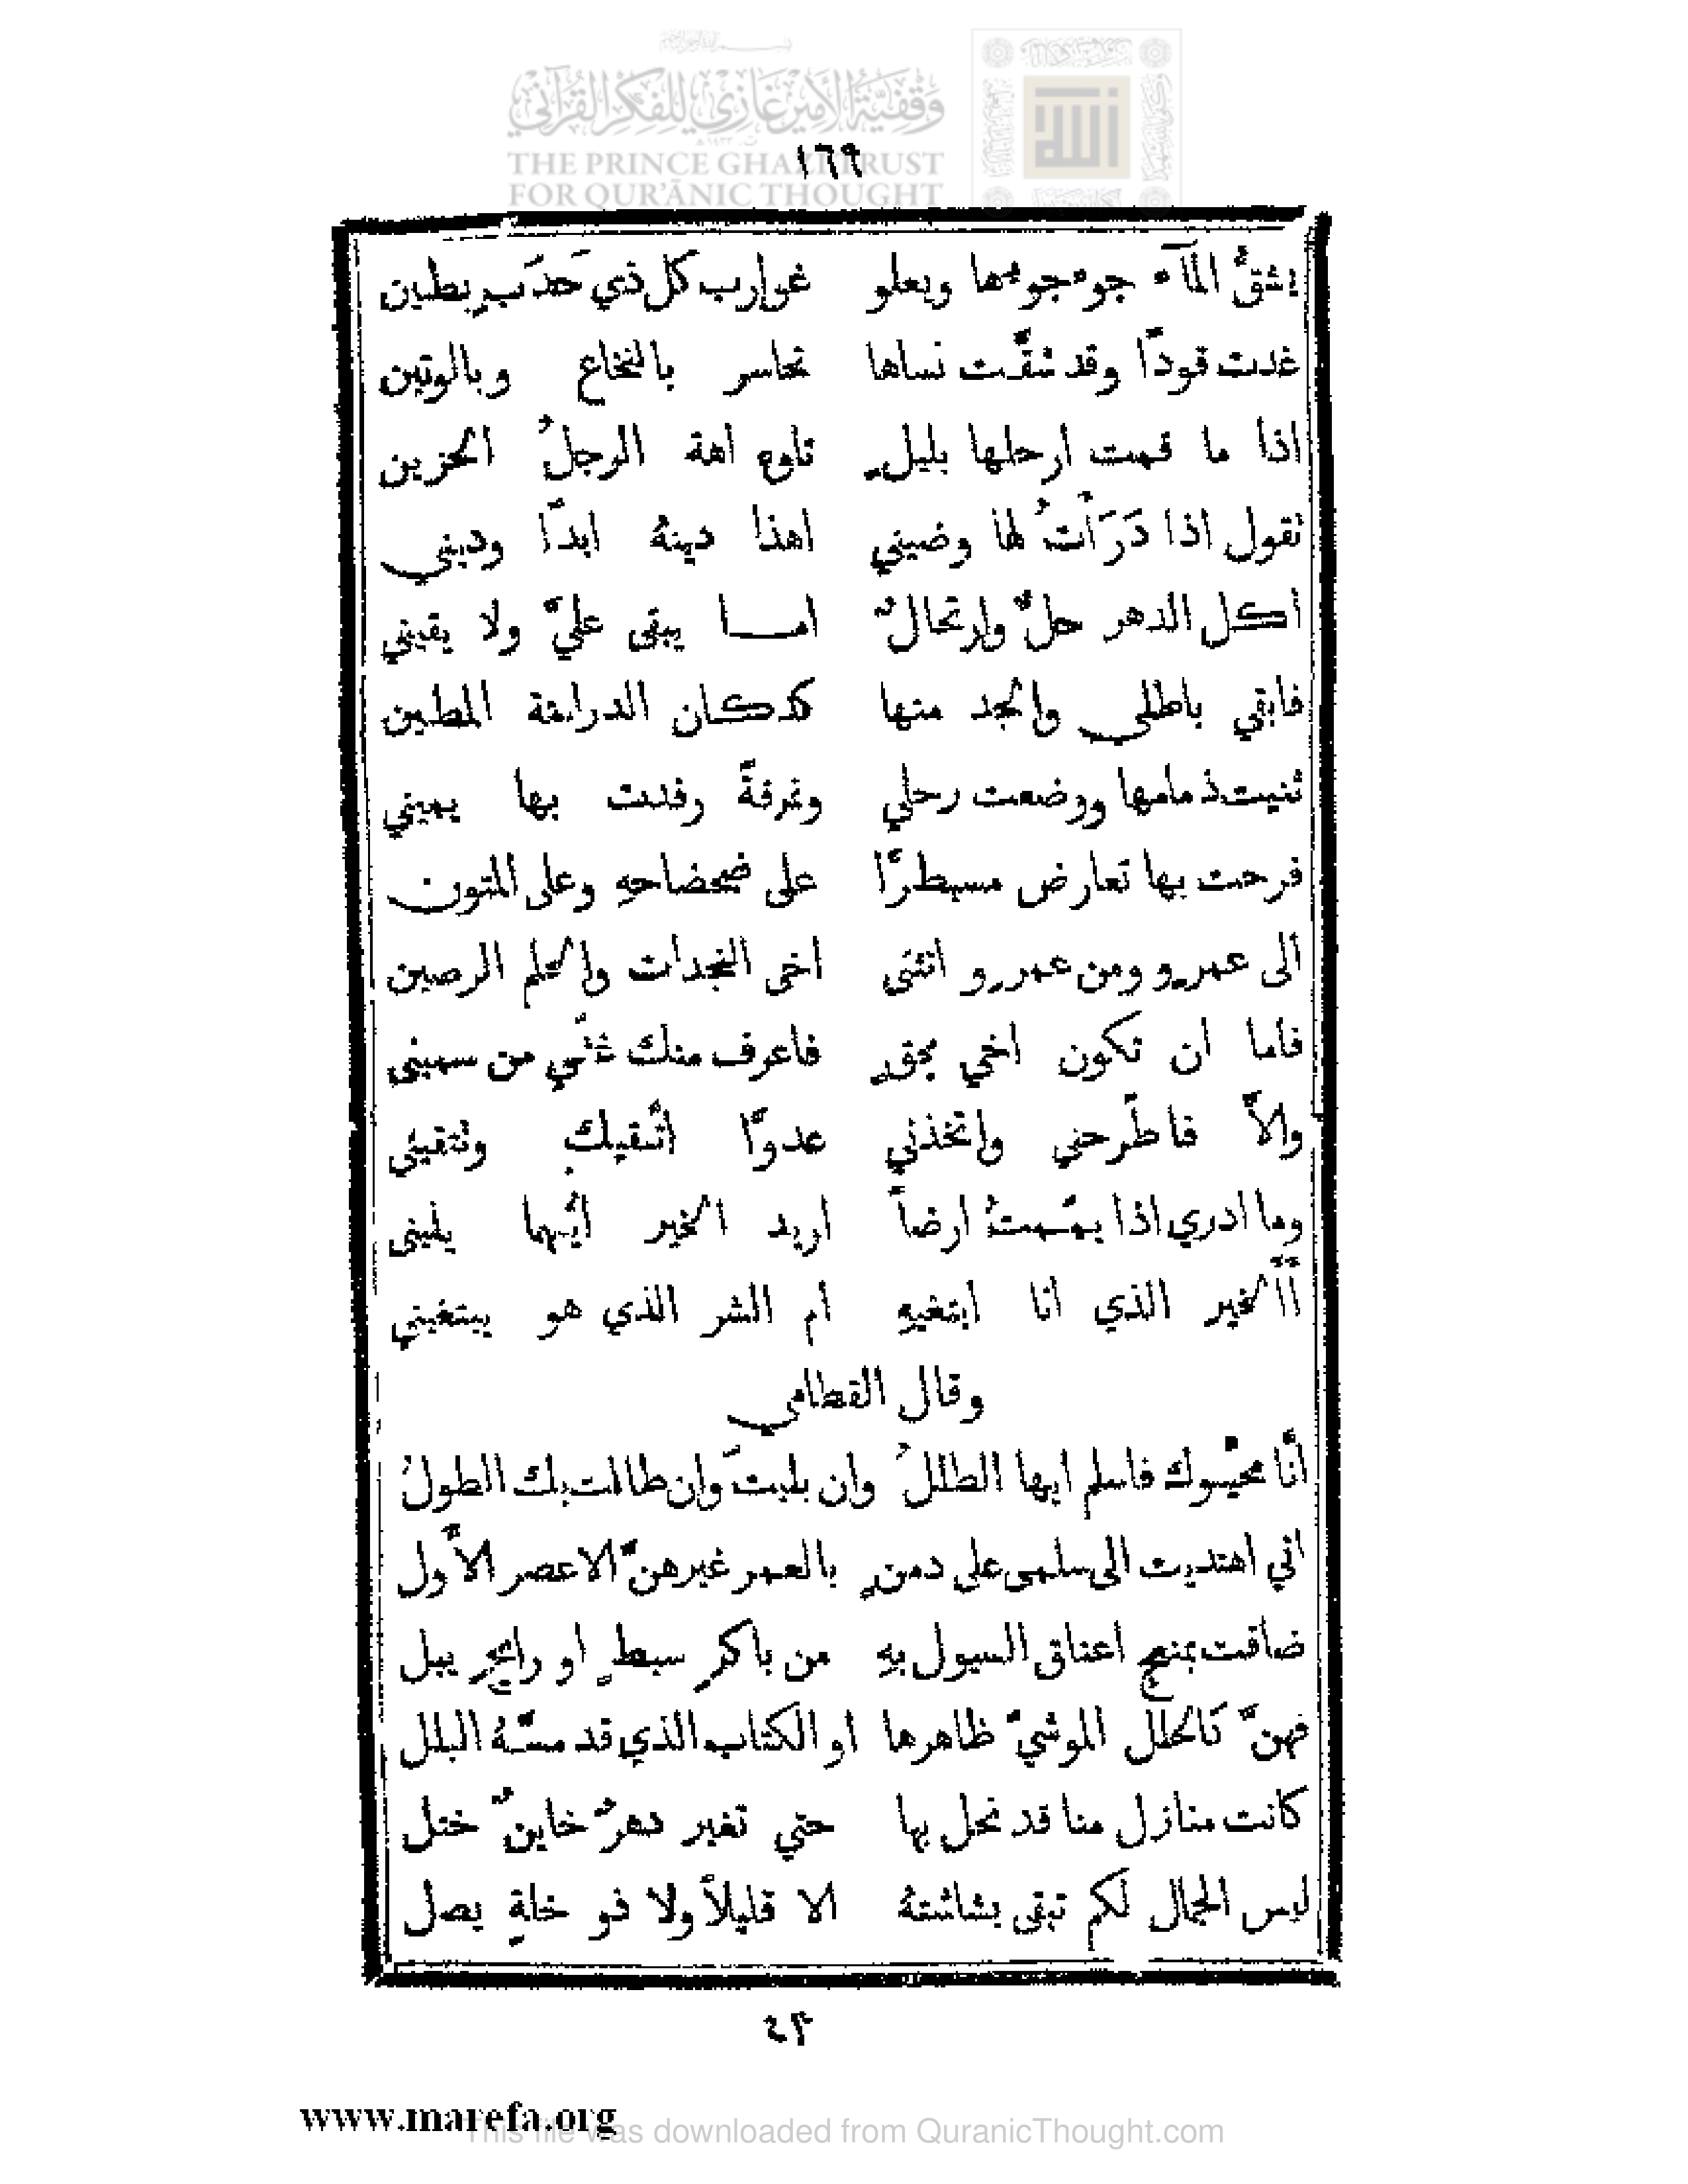 وقفية الأمير غازي للفكر القرآني
THE PRINCE GHAZI TRUST
FOR QUR'ĀNIC THOUGHT
١٦٩
يشقُّ المآء جوءجوءها ويعلو غوارب كل ذي حَدَبٍ بطين
غدت قودًا وقد شقَّت نساها تحاسر بالنخاع وبالوتين
اذا ما قمت ارحلها بليلٍ تاوه اهة الرجلُ الحزين
تقول اذا دَرَأتُ لها وضيني اهذا دينهُ ابدًا وديني
أكل الدهر حلٌّ وارتحالٌ امــا يبقى عليَّ ولا يقيني
فابقي باطلي والجد منها كدكان الدرابنة المطين
ثنيت ذمامها ووضعت رحلي ونمرقةً رفدت بها يميني
فرحت بها تعارض مسبطرًّا على ضحضاحهِ وعلى المتون
الى عمرٍو ومن عمرٍو اتتنى اخى النجدات والحلم الرصين
فاما ان تكون اخي بحقٍ فاعرف منك غثّي من سمينى
والاَّ فاطَّرحني واتخذني عدوًّا اتَّقيكِ وتتقيني
وما ادري اذا يمَّمتُ ارضاً اريد الخير ايُّهما يلينى
أَالخير الذي انا ابتغيهِ أم الشر الذي هو يبتغيني
وقال القطامي
انَّا محيُّوك فاسلم ايها الطللُ وان بليتَ وان طالت بك الطولُ
اني اهتديت الى سلمى على دمنٍ بالعمر غيرهنَّ الاعصر الاَّول
ضاقت بمنعج اعناق السيول بهِ من باكرٍ سبطٍ او رايحٍ يبل
فهنَّ كالحلل الموشيّ ظاهرها او الكتاب الذي قد مسَّهُ البلل
كانت منازل منا قد نحل بها حتي تغير دهرٌ خاينٌ ختل
ليس الجمال لكم تبقى بشاشتهُ الا قليلاً ولا ذو خلةٍ يصل
www.marefa.org
This file was downloaded from QuranicThought.com